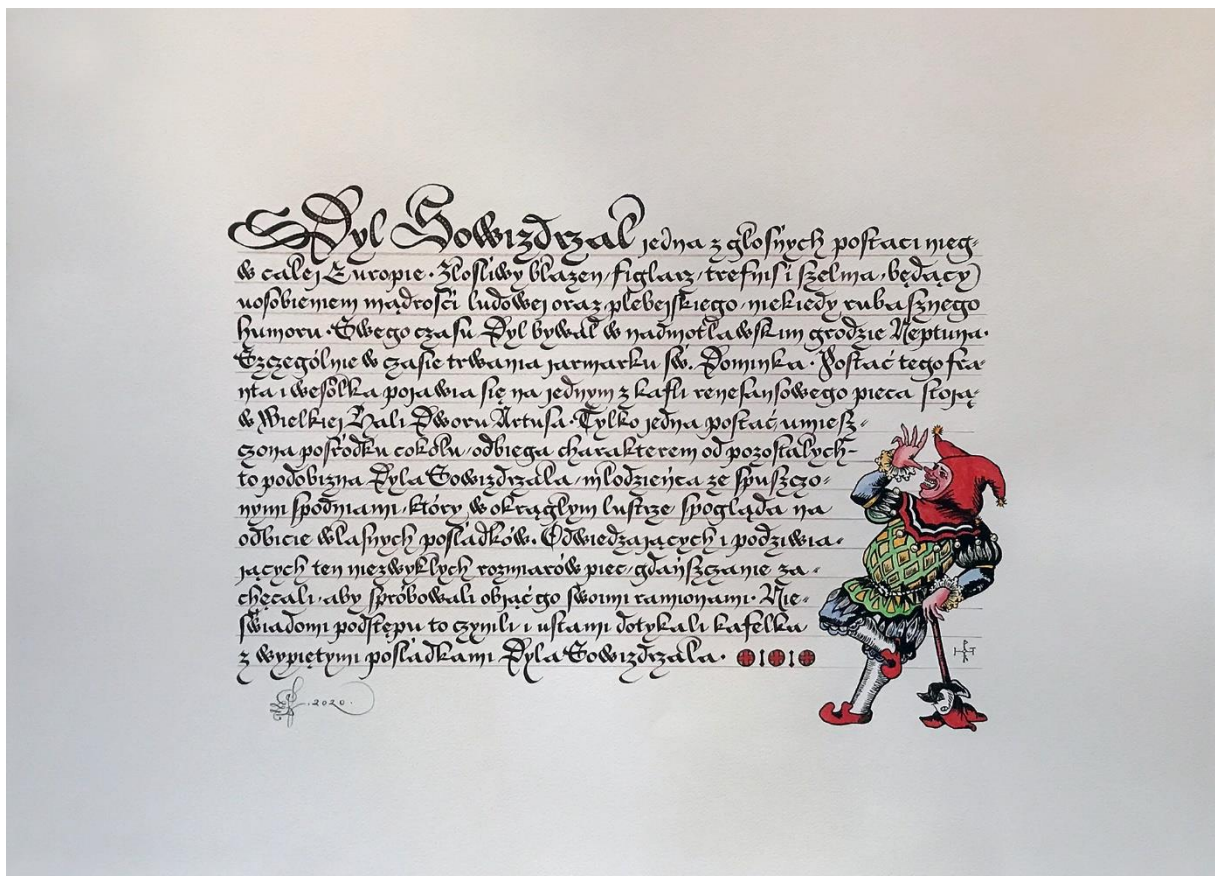 Dyl Sowizdrzał jedna z głośnych postaci nieg-
w całej Europie · Złośliwy błazen / figlarz / trefniś i szelma, będący
uosobieniem mądrości ludowej oraz plebejskiego, niekiedy rubasznego
humoru · Swego czasu Dyl bywał w nadmotławskim grodzie Neptuna ·
Szczególnie w czasie trwania jarmarku św. Dominka · Postać tego fra-
nta i wesołka pojawia się na jednym z kafli renesansowego pieca stoją-
w Wielkiej Hali Dworu Artusa · Tylko jedna postać, umiesz-
czona pośrodku cokołu, odbiega charakterem od pozostałych –
to podobizna Dyla Sowizdrzała, młodzieńca ze spuszczo-
nymi spodniami, który w okrągłym lustrze spogląda na
odbicie własnych pośladków · Odwiedzających i podziwia-
jących ten niezwykłych rozmiarów piec, gdańszczanie za-
chęcali, aby spróbowali objąć go swoimi ramionami · Nie-
świadomi podstępu to czynili i ustami dotykali kafelka
z wypiętymi pośladkami Dyla Sowizdrzała ·
2020